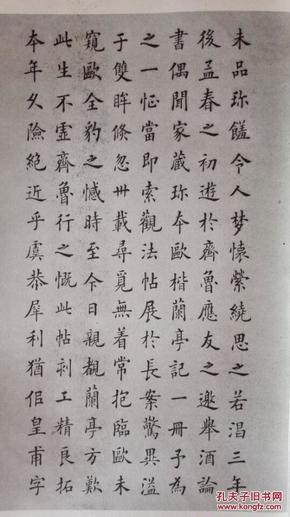 未品珍饈令人梦懷縈繞思之若渴三年
後孟春之初遊於齊魯應友之邀舉酒論
書偶聞家藏珍本歐楷蘭亭記一冊予為
之一怔當即索觀法帖展於長案驚異溢
于雙眸倏忽卅載尋覓無着常抱臨歐未
窺歐全豹之憾時至今日親覩蘭亭方歎
此生不虛齊魯行之慨此帖刹工精良拓
本年久險絕近乎虞恭犀利猶佀皇甫字
孔夫子旧书网